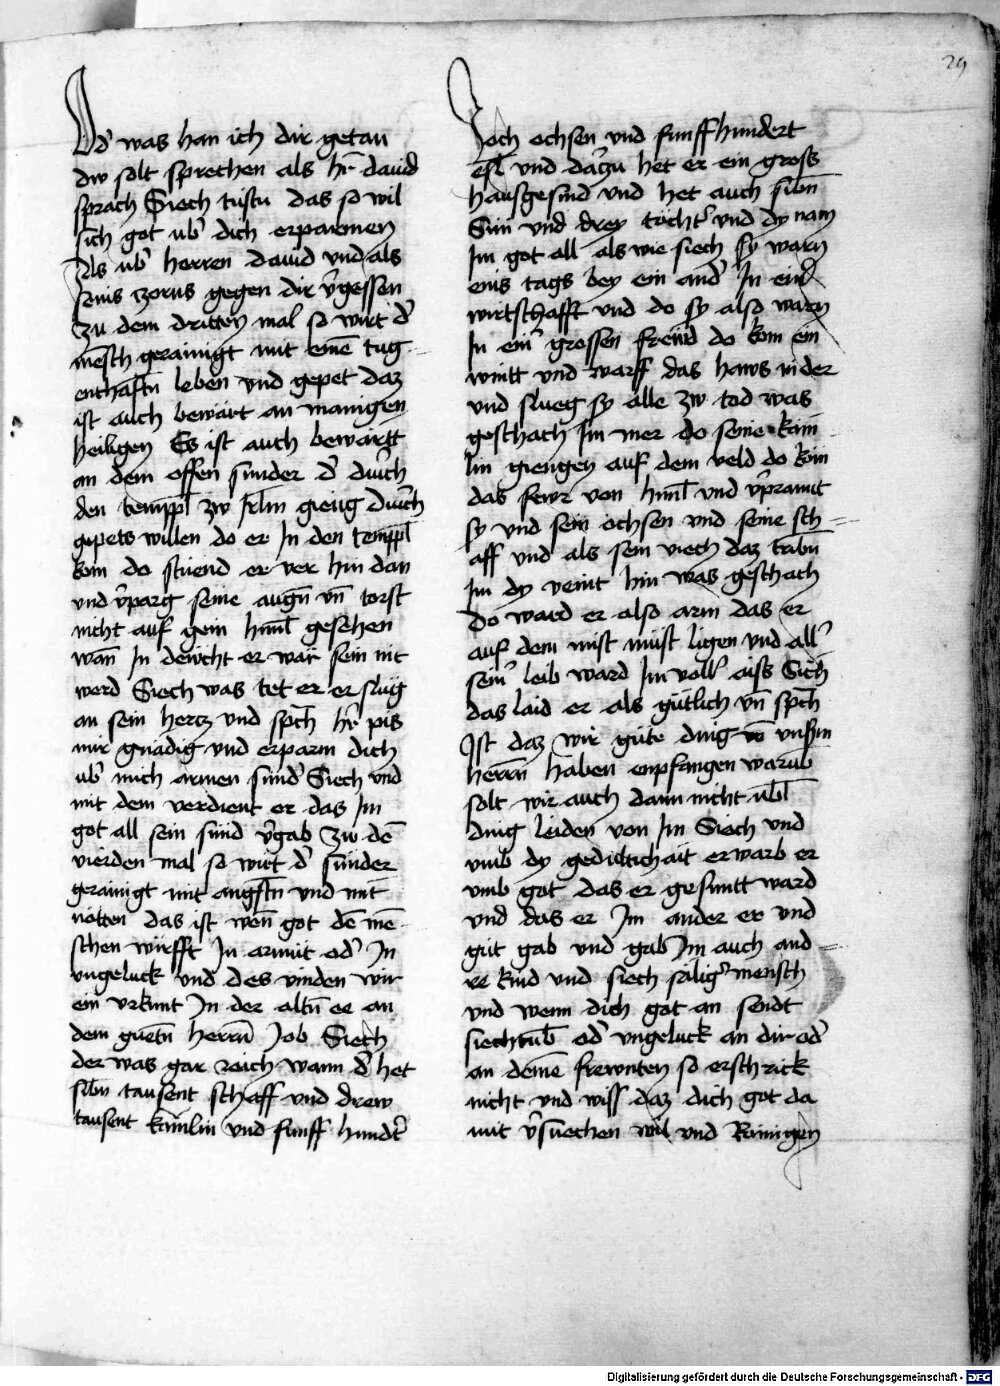 29
Od' was han ich dir getan
dw solt sprechen als hr̄ dauid
sprach Siech tustu das so wil
sich got ub' dich erparmen
Als ub' herren dauid und als
seins zorns gegen dir v'gessen
zu dem dritten mal so wirt d'
mēsch gerainigt mit einē tug-
enthaftn̄ leben und gepet daz
ist auch bewärt an manigen
heiligen Es ist auch bewärtt
an dem offen sunder d' durch
den tempp̄l zw Jrl̄m gieng durch
gepets willen do er In den tempp̄l
kom do stuend er ver hin dan
und v'parg seine augn̄ vn̄ torst
nicht auf gein himl̄ gesehen
wan̄ In dewcht er wär sein nit
werd Siech was tet er er slůg
an sein hertz und spch̄ hr̄ pis
mir gnädig und erparm dich
ub' mich armen sünd' Siech und
mit dem verdient er das Im
got all sein sünd v'gab Zw dē
vierden mal so wirt d' sunder
gerainigt mit angstn̄ und mit
nötten das ist wen̄ got dē mē-
schen wirfft In armut od' In
ungeluck und des vinden wir
ein urkunt In der altn̄ ee an
dem guetn̄ herrn̄ Job Siech
der was gar reich wann d' het
sibn̄ tausent schaff und drew
tausent kämlin und funff hundt'
Joch ochsen und funffhundert
esl̄ und darzu het er ein gross
hausgesind und het auch sibn̄
Sün und drey töcht' und dy nam
Im got all als wie siech sy warn
eins tags bey ein and' In ein'
wirtschafft und do sy also warn
In ein' grossen freüd do kom ein
wintt und warff das haws nider
und slueg sy alle zw tod was
geschach Im mer do seine käm-
lin giengen auf dem veld do kom
das fewr von himl̄ und v'prannt
sy und sein ochsen und seine sch-
aff und als sein viech daz tribn̄
Im dy veint hin was geschach
do ward er also arm das er
auf dem mist must ligen und all'
sein' leib ward Im voll' aiss Siech
das laid er als gütlich vn̄ spch̄
Ist daz wir gute ding vō unserm
herrn̄ haben enpfangen warub̄
solt wir auch dann nicht ubl̄
ding leiden von Im Siech und
umb dy gedultichait erwarb er
umb got das er gesuntt ward
und das er Im ander er und
gut gab und gab Im auch and-
re kind und siech sälig' mensch
und wenn dich got an sendt
siechtub̄ od' ungeluck an dir od'
an deinē frewnten so erschrick
nicht und wiss daz dich got da
mit v'suechen wil und Rainigen
Digitalisierung gefördert durch die Deutsche Forschungsgemeinschaft - DFG